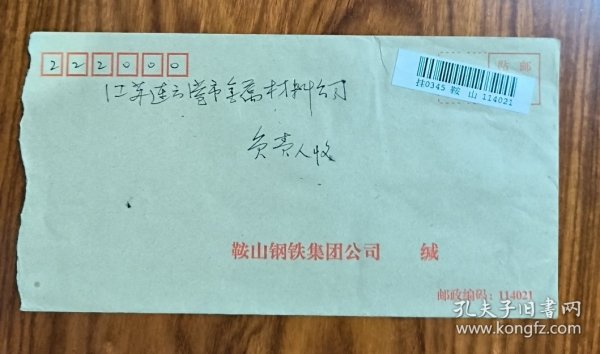 222000
贴 邮
挂0345 鞍 山 114021
江苏连云港市金属材料公司
负责人收
鞍山钢铁集团公司 缄
邮政编码：114021
孔夫子旧书网
www.kongfz.com